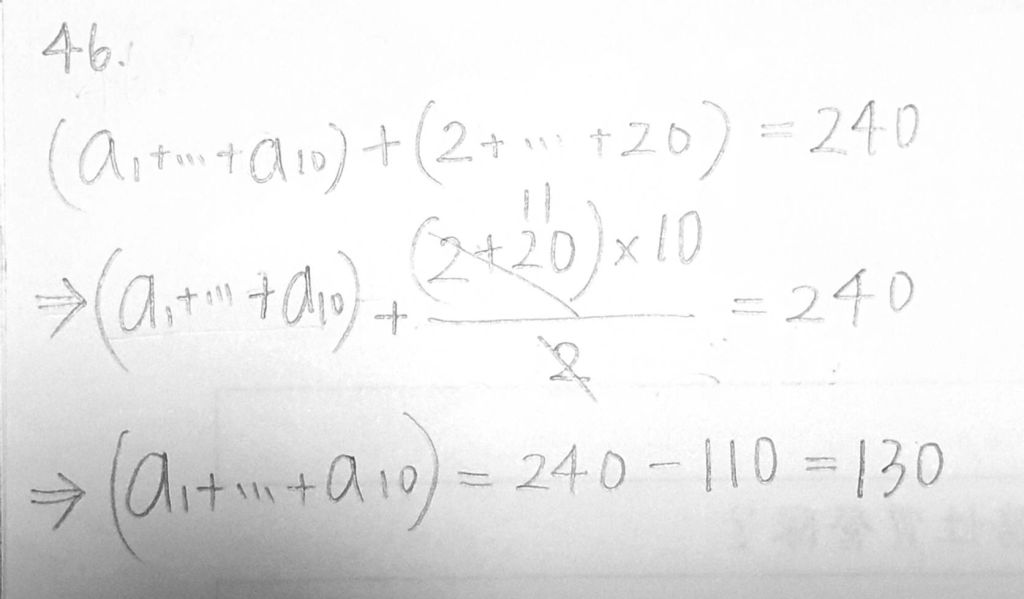 46.
(a₁+…+a₁₀)+(2+…+20)=240
⇒(a₁+…+a₁₀)+\frac{\overset{11}{\cancel{(2+20)}}×10}{\cancel{2}}=240
⇒(a₁+…+a₁₀)=240-110=130